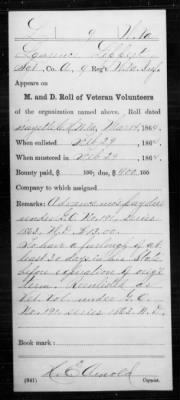 L 9 W. Va.
Sgt., Co. A, 9 Reg't W. Va. Inf.
Appears on
M. and D. Roll of Veteran Volunteers
of the organization named above. Roll dated
Mar 14, 1864.
When enlisted Feb 29, 1864.
When mustered in Feb 29, 1864.
Bounty paid, $ 100; due, $ 400.100
Company to which assigned
Remarks: Advance mos. pay due
under G.O. No. 191, series
1863, W.D. $13.00.
To have a furlough of at
least 30 days in his State
before expiration of orig'l
term. Reenlisted as
Vet. Vol. under G.O.
No. 191 series 1863 W.D.
Book mark:
Arnold
(941) Copyist.